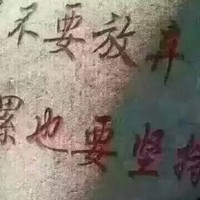 不要放弃
累也要坚持